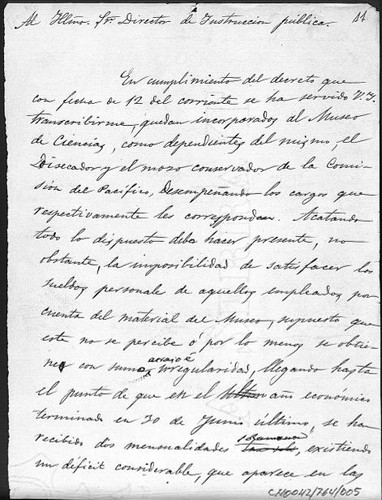 Al Illmo. Sr. Director de Instruccion pública. 11
En cumplimiento del decreto que
con fecha de 12 del corriente se ha servido V.I.
transcribirme, quedan incorporados al Museo
de Ciencias, como dependientes del mismo, el
Disecador y el mozo conservador de la Comi-
sion del Pacífico, desempeñando los cargos que
respectivamente les correspondan. Acatando
todo lo dispuesto debo hacer presente, no
obstante, la imposibilidad de satisfacer los
sueldos personales de aquellos empleados, por
cuenta del material del Museo, supuesto que
este no se percibe ó por lo menos se obtie-
ne con suma irregularidad, llegando hasta
atraso é
el punto de que en el año económico
terminado en 30 de Junio último, se ha
recibido dos mensualidades existiendo
un déficit considerable, que aparece en las
CN0042/764/005